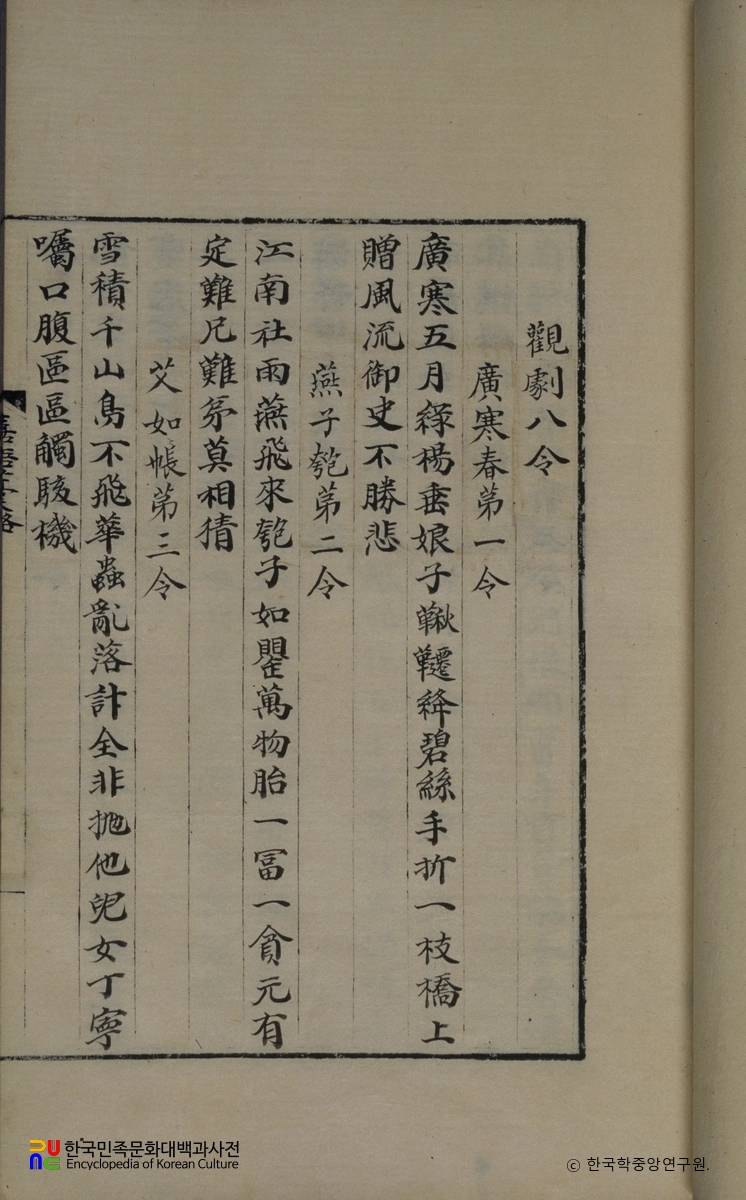 觀劇八令
廣寒春第一令
廣寒五月綠楊垂娘子鞦韆絳碧絲手折一枝橋上
贈風流御史不勝悲
燕子匏第二令
江南社雨燕飛來匏子如瞿萬物胎一冨一貧元有
定難兄難弟莫相猜
艾如帳第三令
雪積千山鳥不飛華蟲亂落計全非抛他兒女丁寧
囑口腹區區觸駭機
한국민족문화대백과사전
Encyclopedia of Korean Culture
ⓒ 한국학중앙연구원.